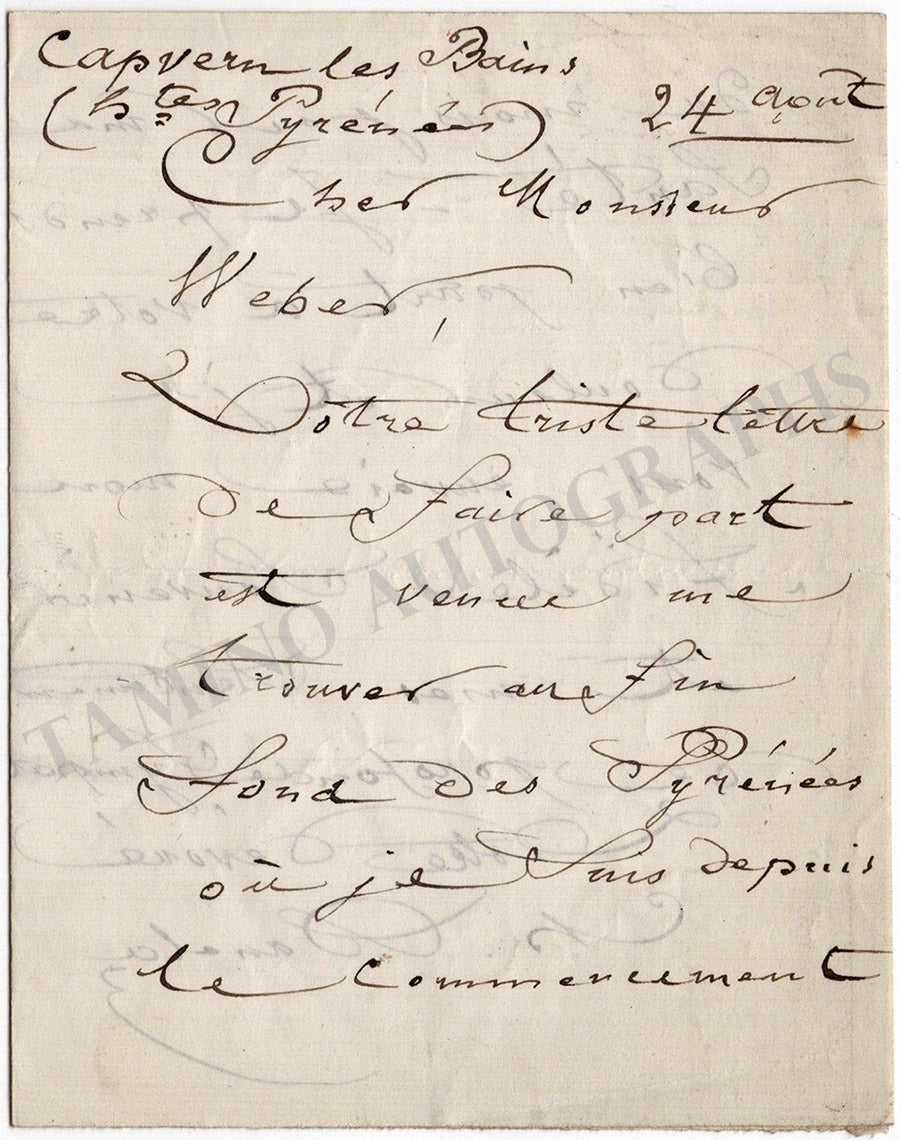 Capvern les Bains
(htes Pyrénées) 24 août
Cher Monsieur
Weber,
Votre triste lettre
de faire part
est venue me
trouver au fin
fond des Pyrénées
où je suis depuis
le commencement
TAMINO AUTOGRAPHS